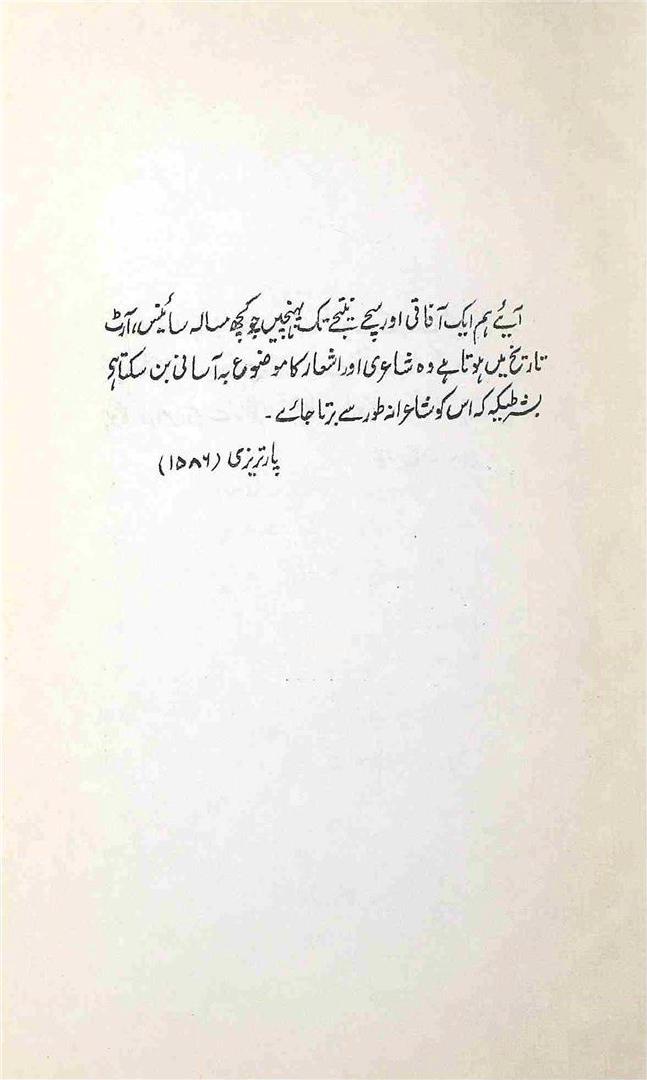 آیئے ہم ایک آفاقی اور سچے نتیجے تک پہنچیں جو کچھ مسالہ سائنس، آرٹ
تاریخ میں ہوتا ہے وہ شاعری اور اشعار کا موضوع بہ آسانی بن سکتا ہی
بشرطیکہ کہ اس کو شاعرانہ طور سے برتا جائے ۔
پارتریزی (۱۵۸۶)